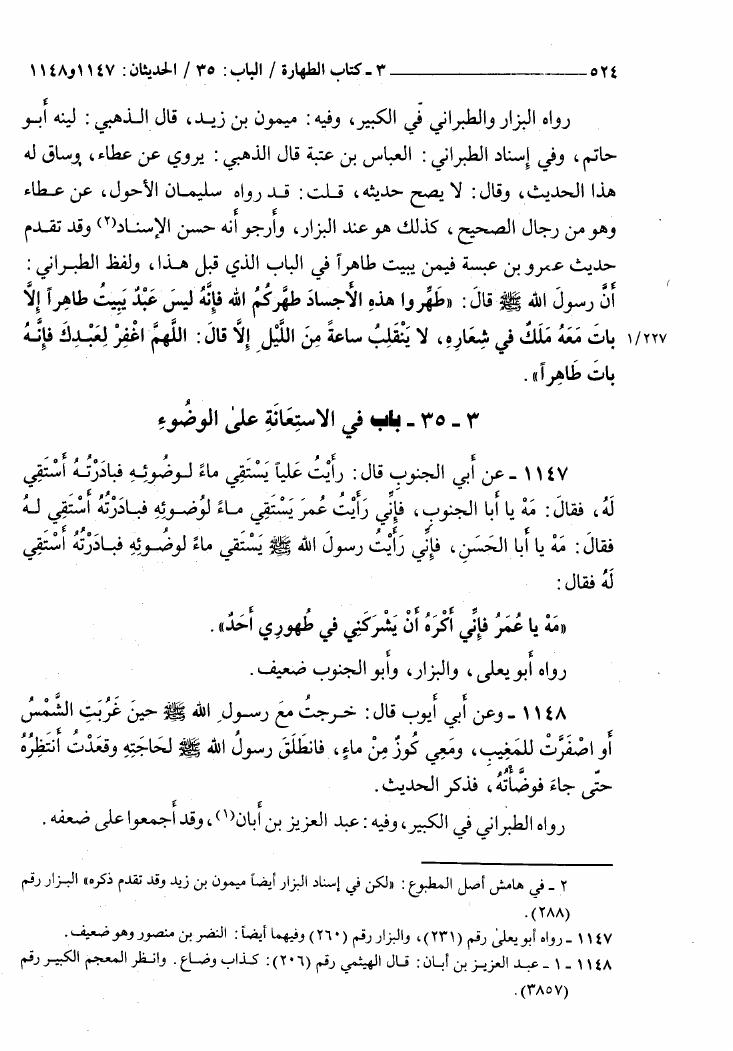 ٥٢٤ ــــــــــــــــــــــ ٣ ـ كتاب الطهارة / الباب: ٣٥ / الحديثان: ١١٤٧و١١٤٨
رواه البزار والطبراني في الكبير، وفيه: ميمون بن زيد، قال الذهبي: لينه أبو
حاتم، وفي إسناد الطبراني: العباس بن عتبة قال الذهبي: يروي عن عطاء، وساق له
هذا الحديث، وقال: لا يصح حديثه، قلت: قد رواه سليمان الأحول، عن عطاء
وهو من رجال الصحيح، كذلك هو عند البزار، وأرجو أنه حسن الإسناد(٢) وقد تقدم
حديث عمرو بن عبسة فيمن يبيت طاهراً في الباب الذي قبل هذا، ولفظ الطبراني:
أَنَّ رسولَ الله ﷺ قالَ: «طَهِّروا هذهِ الأجسادَ طهَّركُمُ الله فإنَّهُ ليسَ عَبْدٌ يَبِيتُ طاهِراً إلَّا
باتَ مَعَهُ مَلَكٌ في شِعَارِهِ، لا يَنْقَلِبُ ساعةً مِنَ اللَّيْلِ إلَّا قالَ: اللَّهمَّ اغْفِرْ لِعَبْدِكَ فإنَّهُ ١/٢٢٧
باتَ طَاهِراً».
٣ ـ ٣٥ ـ باب في الاستِعَانَةِ علىٰ الوضُوءِ
١١٤٧ ـ عن أبي الجنوب قال: رأَيْتُ علياً يَسْتَقِي ماءً لوضُوئِهِ فبادَرْتُهُ أَسْتَقِي
لَهُ، فقالَ: مَهْ يا أبا الجنوبِ، فإنِّي رَأَيْتُ عمرَ يَسْتَقِي ماءً لوُضوئِهِ فبادَرْتُهُ أَسْتَقِي لهُ
فقالَ: مَهْ يا أبا الحَسَنِ، فإنِّي رَأَيْتُ رسولَ الله ﷺ يَسْتَقي ماءً لوضُوئِهِ فبادَرْتُهُ أَسْتَقِي
لَهُ فقال:
«مَهْ يا عُمَرُ فإنِّي أَكْرَهُ أَنْ يَشْرَكَنِي في طُهورِي أَحَدٌ».
رواه أبو يعلى، والبزار، وأبو الجنوب ضعيف.
١١٤٨ ـ وعن أبي أيوب قال: خرجتُ معَ رسولِ الله ﷺ حينَ غَرُبَتِ الشَّمْسُ
أَو اصْفَرَّتْ للمَغِيبِ، ومَعِي كُوزٌ مِنْ ماءٍ، فانطَلَقَ رسولُ الله ﷺ لحَاجَتِهِ وقعَدْتُ أَنتَظِرُهُ
حتّى جاءَ فوضَّأْتُهُ، فذكر الحديث.
رواه الطبراني في الكبير، وفيه: عبد العزيز بن أبان(١)، وقد أجمعوا على ضعفه.
٢ ـ في هامش أصل المطبوع: «لكن في إسناد البزار أيضاً ميمون بن زيد وقد تقدم ذكره» البزار رقم
(٢٨٨).
١١٤٧ ـ رواه أبو يعلىٰ رقم (٢٣١)، والبزار رقم (٢٦٠) وفيهما أيضاً: النضر بن منصور وهو ضعيف.
١١٤٨ ـ ١ ـ عبد العزيز بن أبان: قال الهيثمي رقم (٢٠٦): كذاب وضاع. وانظر المعجم الكبير رقم
(٣٨٥٧).